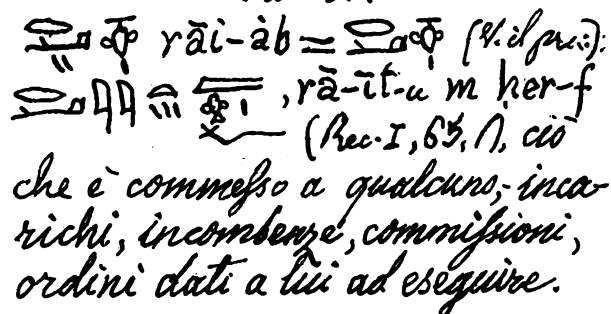 rāi-àb = (V. il prec.):
, rā-īt-u m ḥer-f
(Rec. I, 65, 1, ciò
che è commesso a qualcuno,- inca-
richi, incombenze, commissioni,
ordini dati a lui ad eseguire.